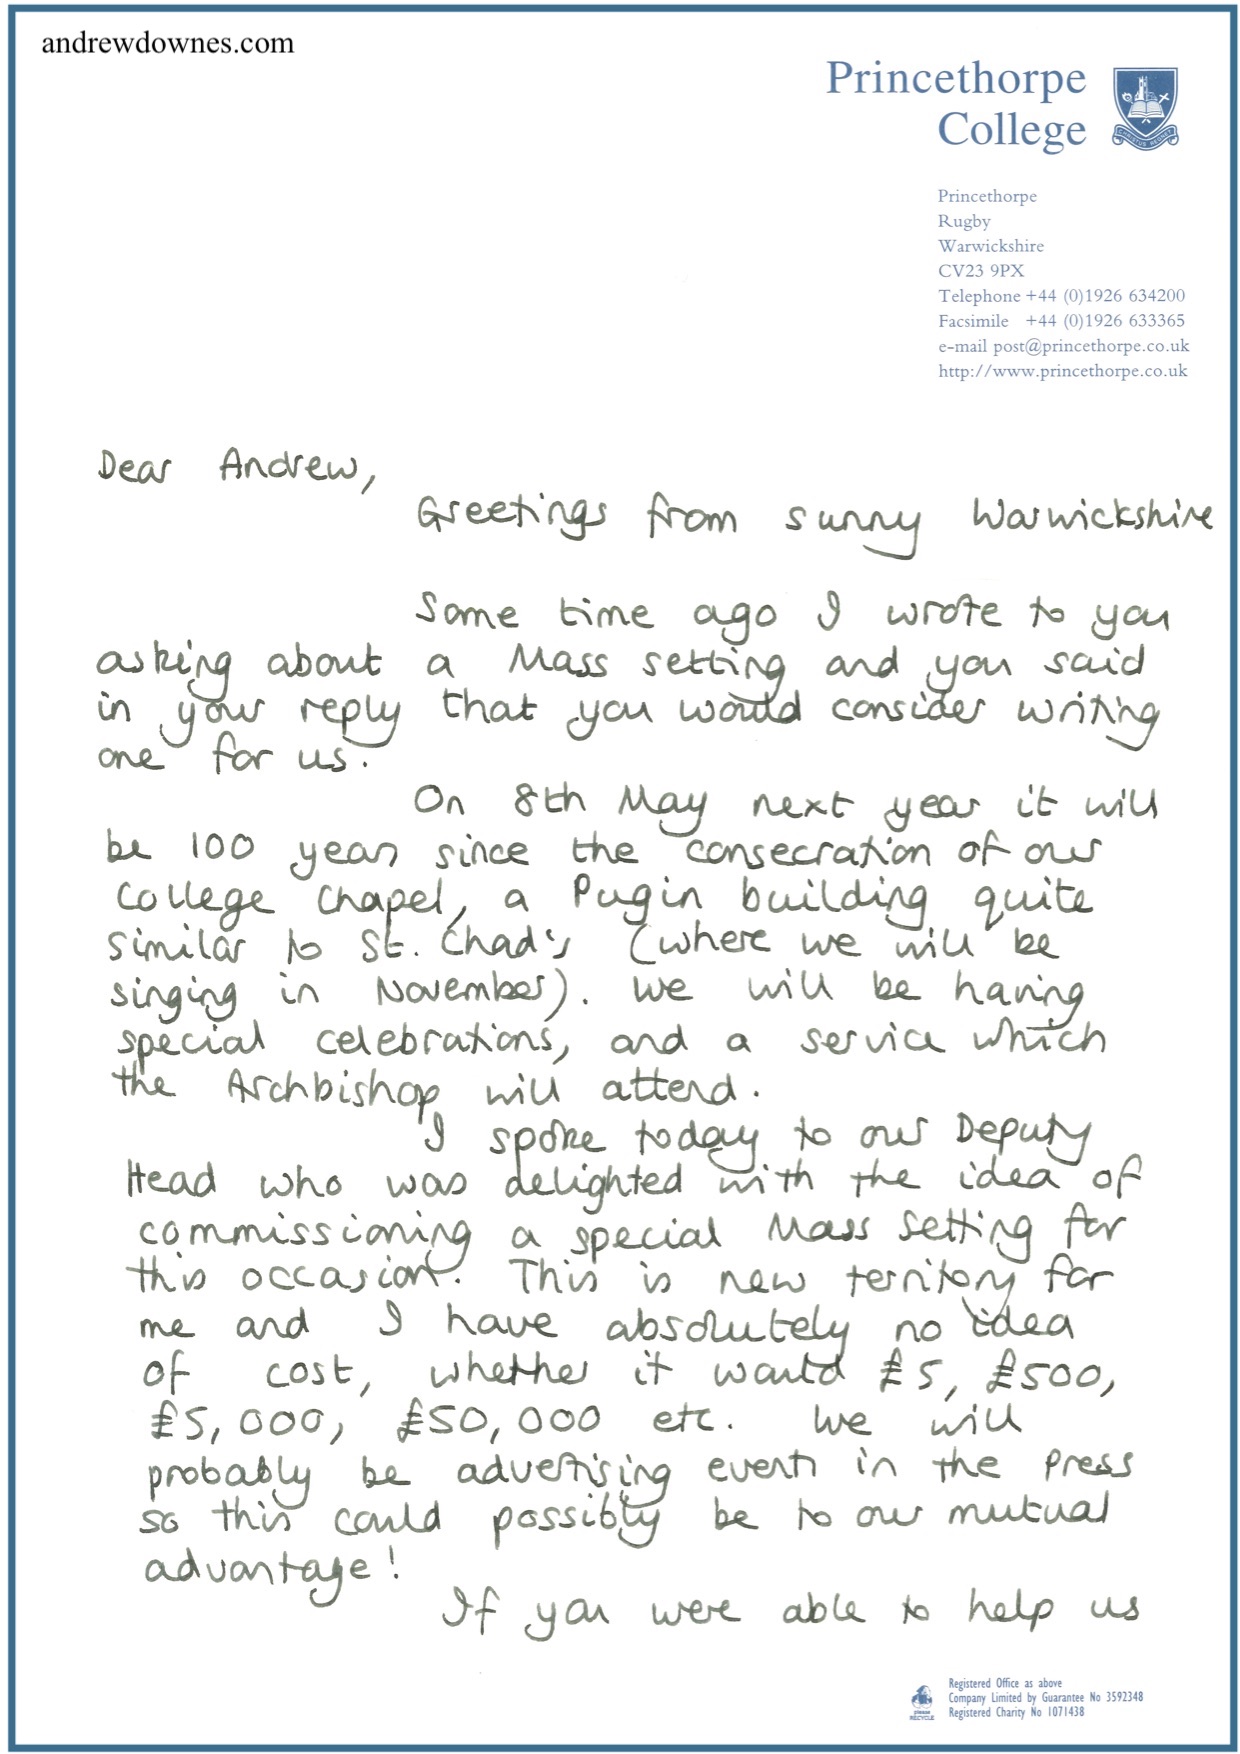 andrewdownes.com
Princethorpe
College
CHRISTUS REGNET
Princethorpe
Rugby
Warwickshire
CV23 9PX
Telephone +44 (0)1926 634200
Facsimile +44 (0)1926 633365
e-mail post@princethorpe.co.uk
http://www.princethorpe.co.uk
Dear Andrew,
Greetings from sunny Warwickshire
Some time ago I wrote to you
asking about a Mass setting and you said
in your reply that you would consider writing
one for us.
On 8th May next year it will
be 100 years since the consecration of our
College Chapel, a Pugin building quite
similar to St. Chad's (where we will be
singing in November). We will be having
special celebrations, and a service which
the Archbishop will attend.
I spoke today to our Deputy
Head who was delighted with the idea of
commissioning a special Mass Setting for
this occasion. This is new territory for
me and I have absolutely no idea
of cost, whether it would £5, £500,
£5,000, £50,000 etc. We will
probably be advertising events in the Press
so this could possibly be to our mutual
advantage!
If you were able to help us
Registered Office as above
Company Limited by Guarantee No 3592348
Registered Charity No 1071438
please
RECYCLE